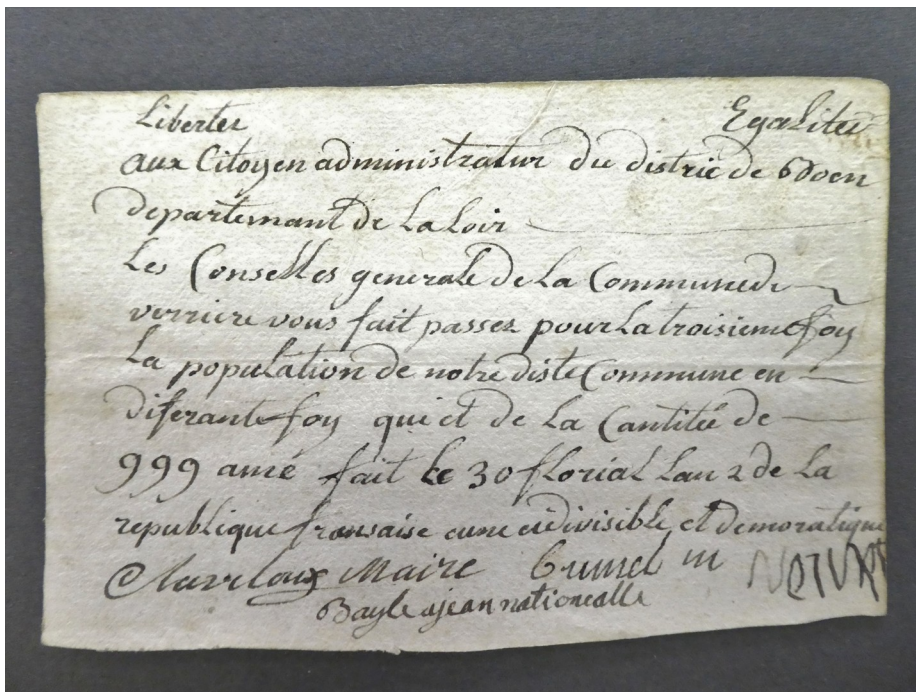 Libertee Egalitee
aux Citoyen administratur du distric de boen
departemant de La Loir
Les Conselles generale de La Commune de
verriere vous fait passez pour La troisieme foy
La population de notre diste Commune en
diferante foy qui et de La Cantitée de
999 ame fait le 30 florial Lan 2 de La
republique fransaise eune eidivisible et demoratique
Maire
Bayle ajean nationealle